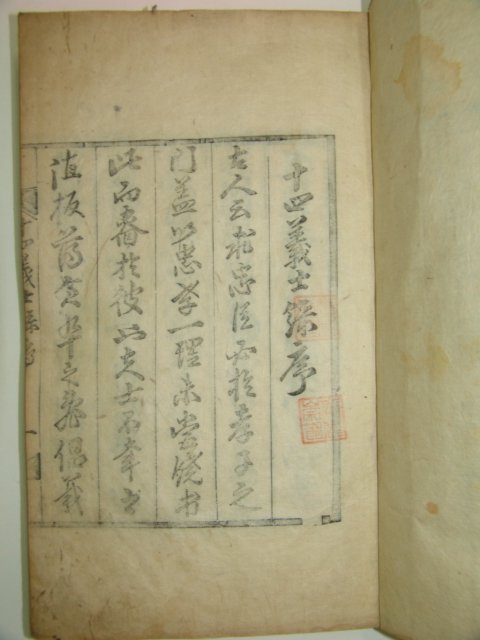 十四義士錄序
古人云求忠臣必於孝子之
门盖以忠孝一理未嘗饒于
此而嗇於彼也夫士不幸而
值板蕩倉卒之飛倡義
十四義士錄序 一